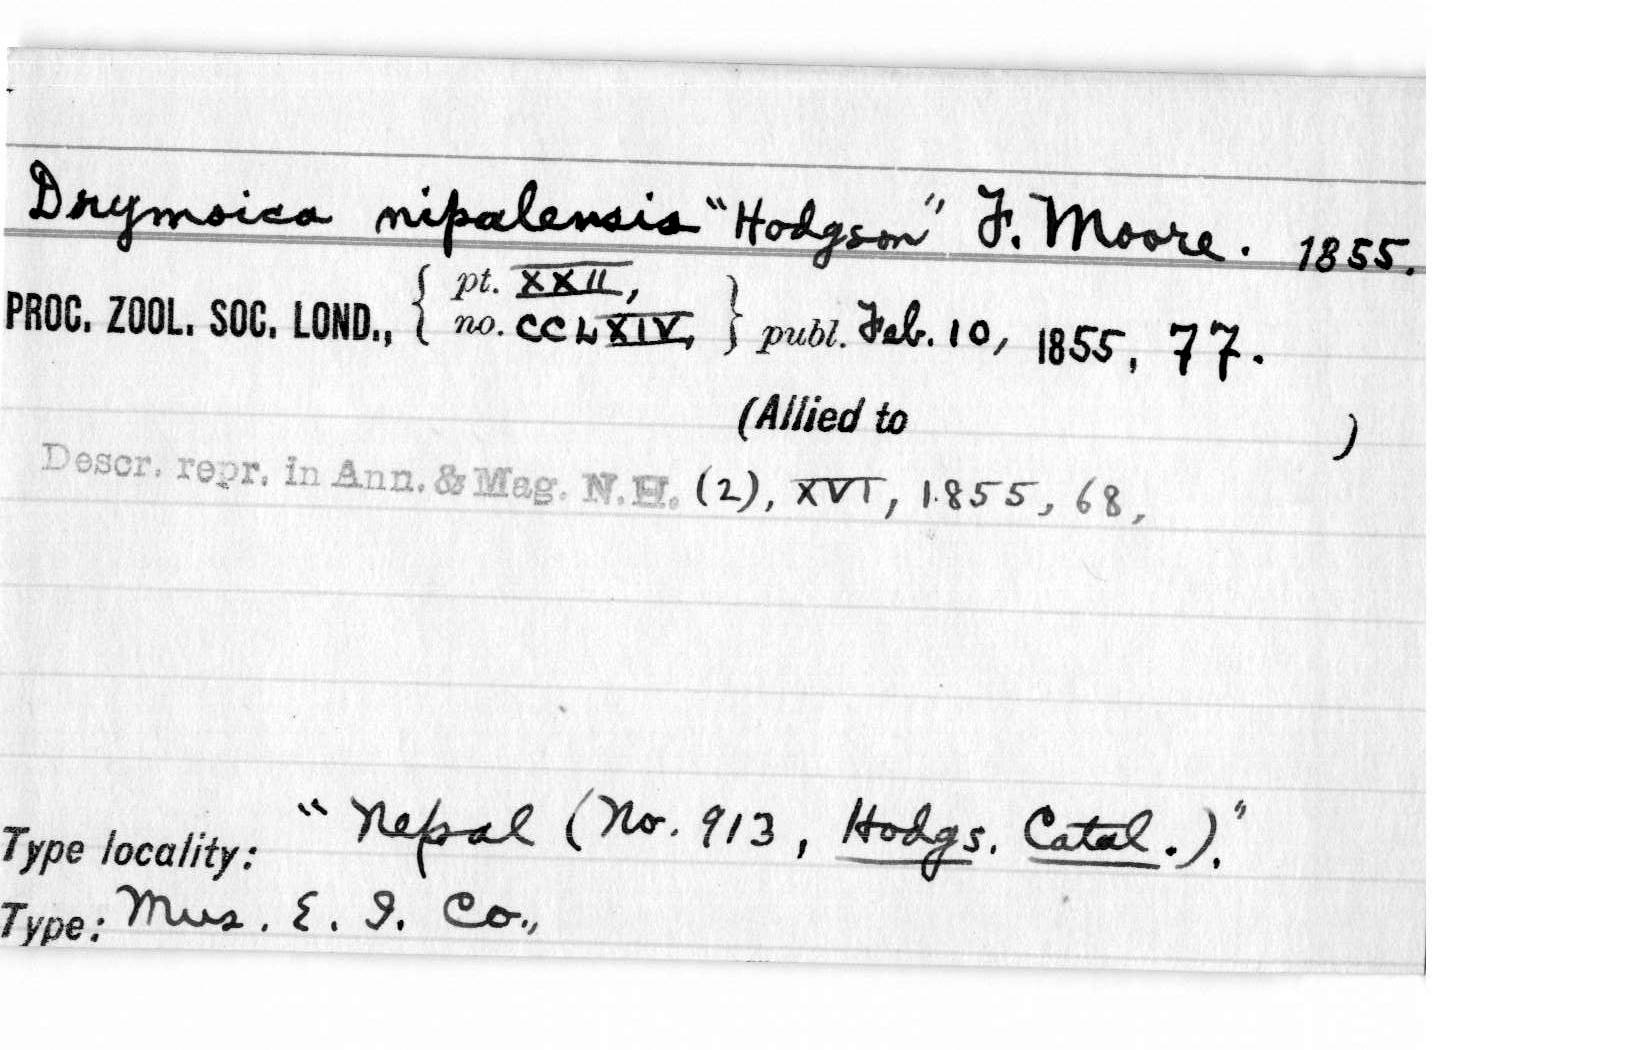 Drymoica nipalensis "Hodgson" F. Moore. 1855.
PROC. ZOOL. SOC. LOND., { pt. XXII, no. CCLXIV, } publ. Feb. 10, 1855, 77.
(Allied to )
Descr. repr. in Ann. & Mag. N.H. (2), XVI, 1855, 68,
Type locality: "Nepal (No. 913, Hodgs. Catal.)."
Type: Mus. E. I. Co.,